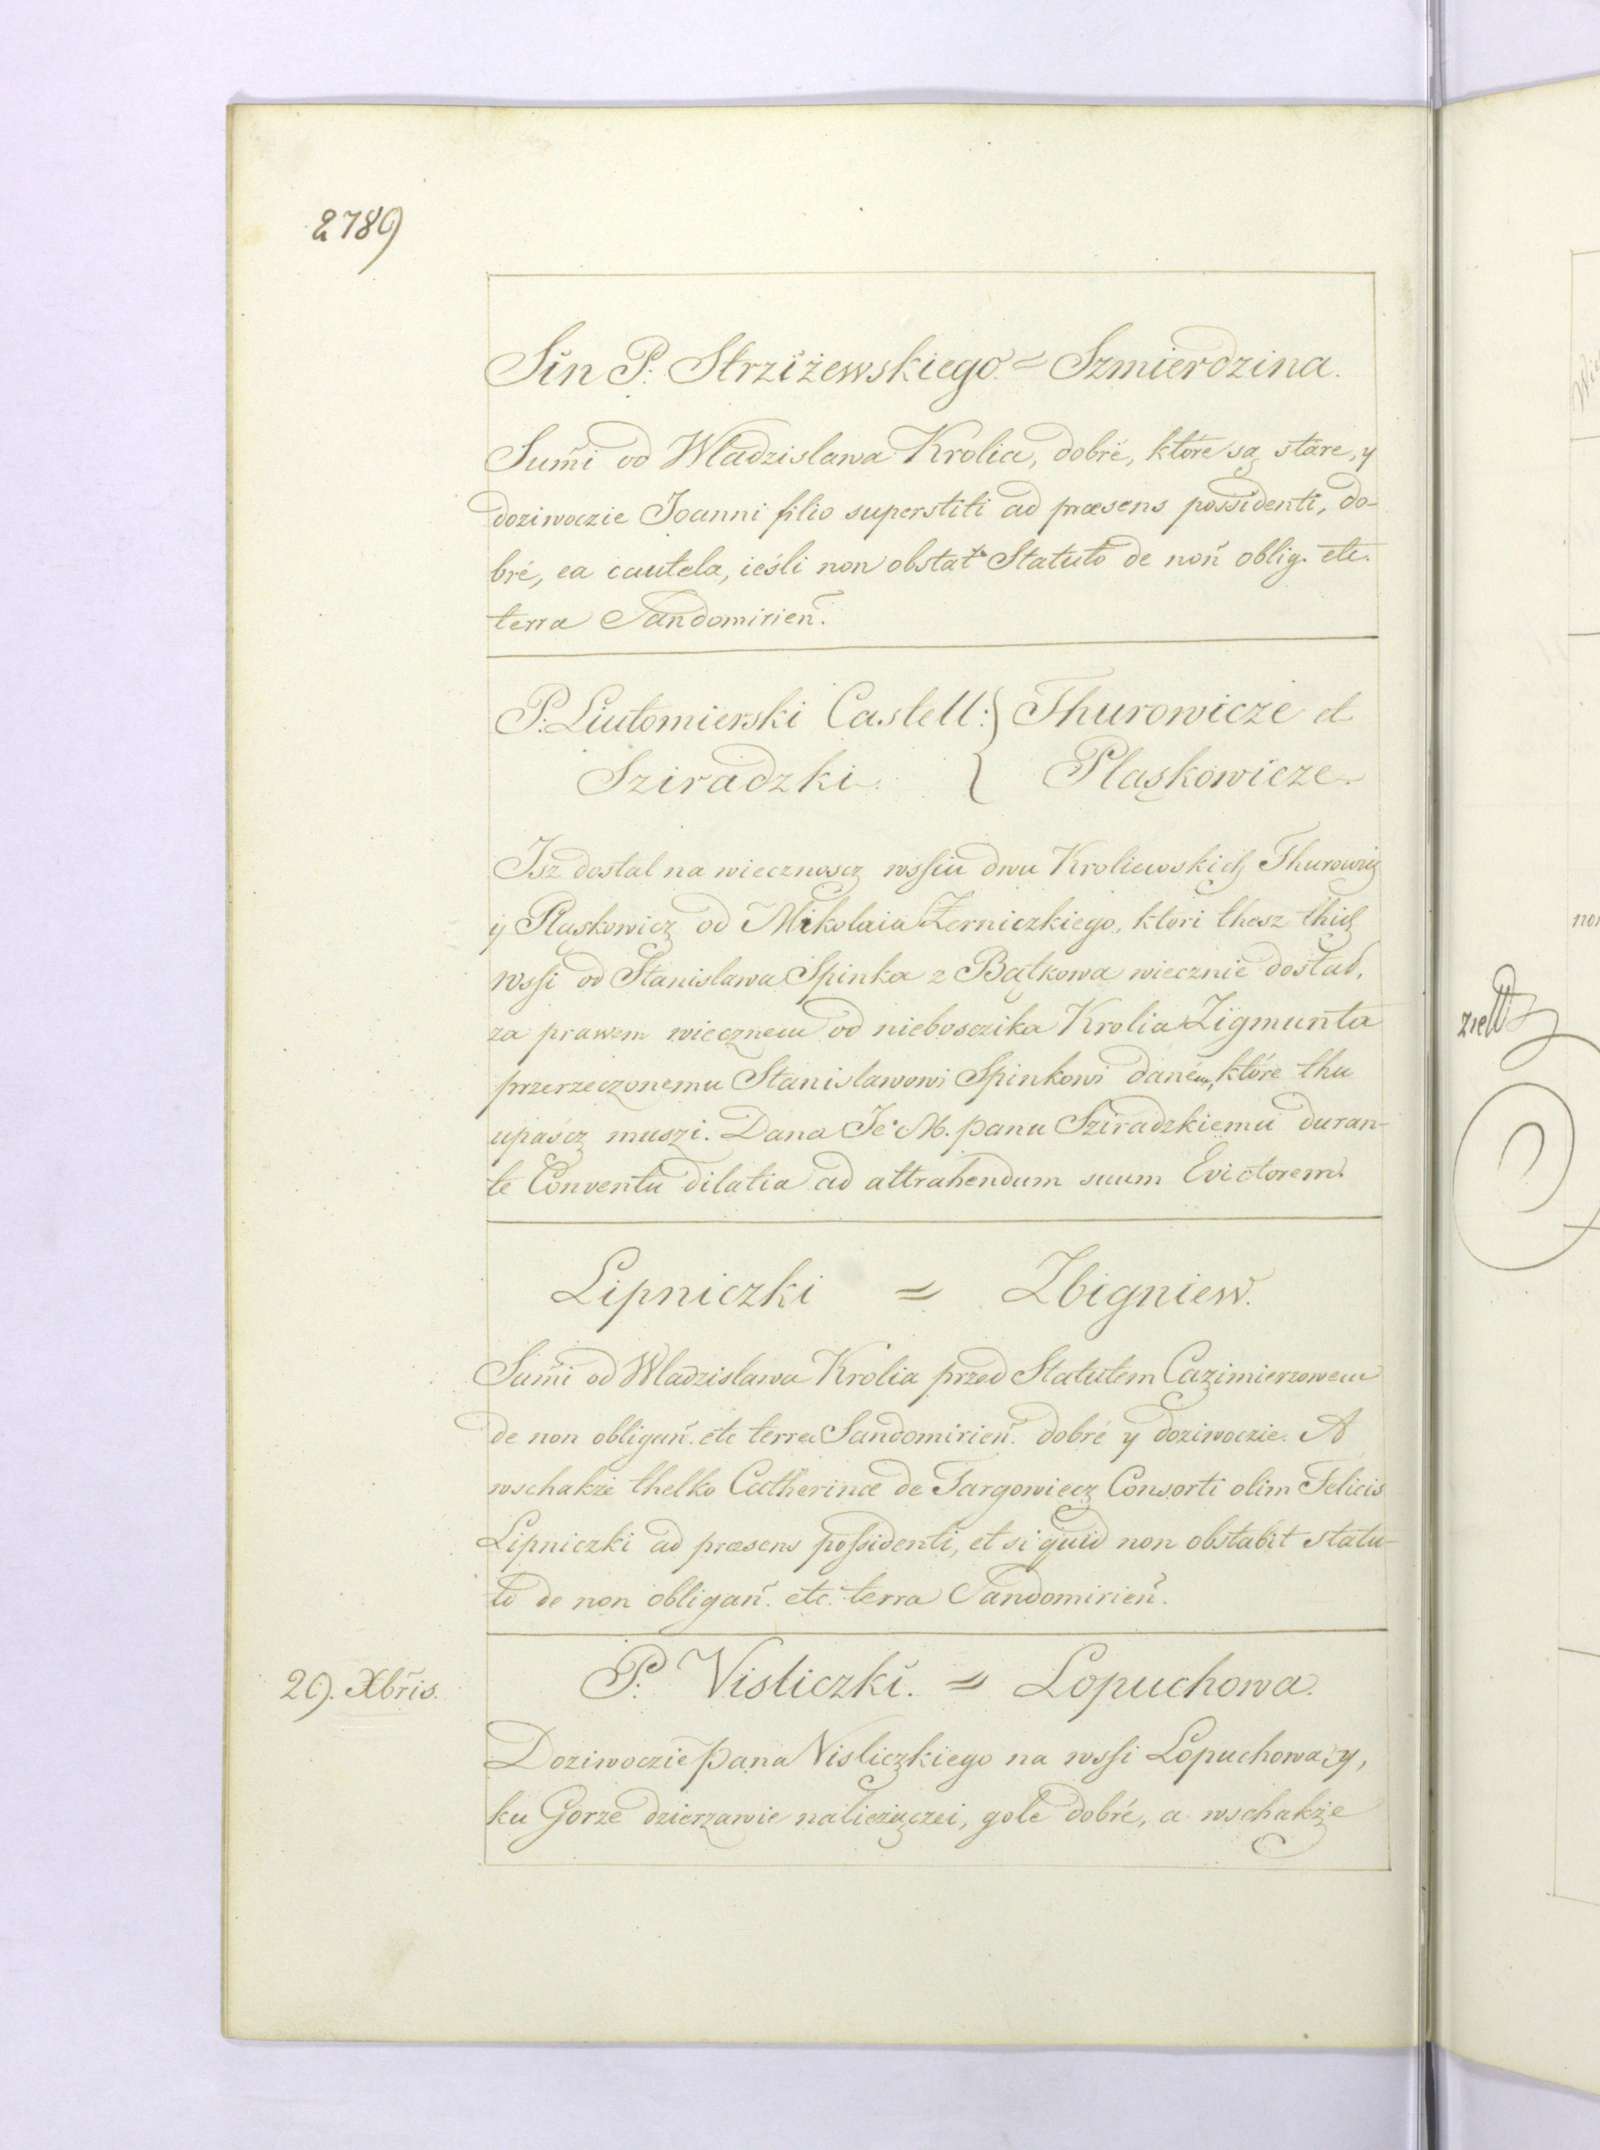 2789
Sin P: Strziżewskiego = Szmierdzina.
Sum̃i od Wladzislawa Krolia, dobré, które są stare, y
doziwoczie Joanni filio superstiti ad præsens possidenti, do-
bré, ea cautela, ieśli non obstat Statuto de noñ oblig. etc.
terra Sandomirieñ.
P: Liutomierski Castell: } Thurowicze et
Sziradzki. { Pląskowicze
Jsz dostal na wiecznoscz wssiu dwu Kroliewskich Thurowicz
ÿ Pląskowicz od Mikolaia Żerniczkiego, ktori thesz thich
wssi od Stanislawa Spinka z Bątkowa wiecznie dostał,
za prawem wiecznem od nieboszczika Krolia Zigmunta
przerzeczonemu Stanislawowi Spinkowi daném, które thu
upaścz muszi. Dana Je° M. panu Sziradzkiemu duran-
te Conventu dilatia ad attrahendum suum Evictorem.
Lipniczki = Zbigniew.
Sum̃i od Wladzislawa Krolia przed Statutem Cazimierzowem
de non obligañ. etc terræ Sandomirieñ. dobré y doziwoczie. A
wschakże thelko Catherinæ de Targowiecz Consorti olim Felicis
Lipniczki ad præsens possidenti, et si quid non obstabit statu-
to de non obligañ. etc. terra Sandomirieñ.
29. Xbris. P. Visliczki. = Lopuchowa.
Doziwoczie pana Visliczkiego na wssi Lopuchowa, y,
ku Górze dzierzawie należączei, gołe dobré, a wschakże